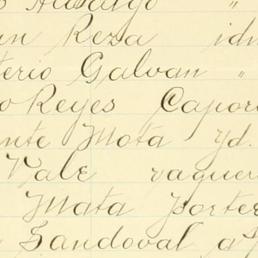 o Hidalgo "
un Reza idn
terio Galvan "
o Reyes Capor
ente Mota yd.
Vale vaquer
Mata porter
Sandoval